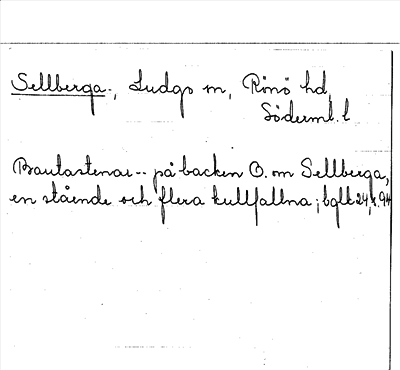 Sellberga, Ludgo sn, Rönö hd,
Söderml. l
Bautastenar -- på backen O. om Sellberga,
en stående och flera kullfallna; bglb 24, s. 94